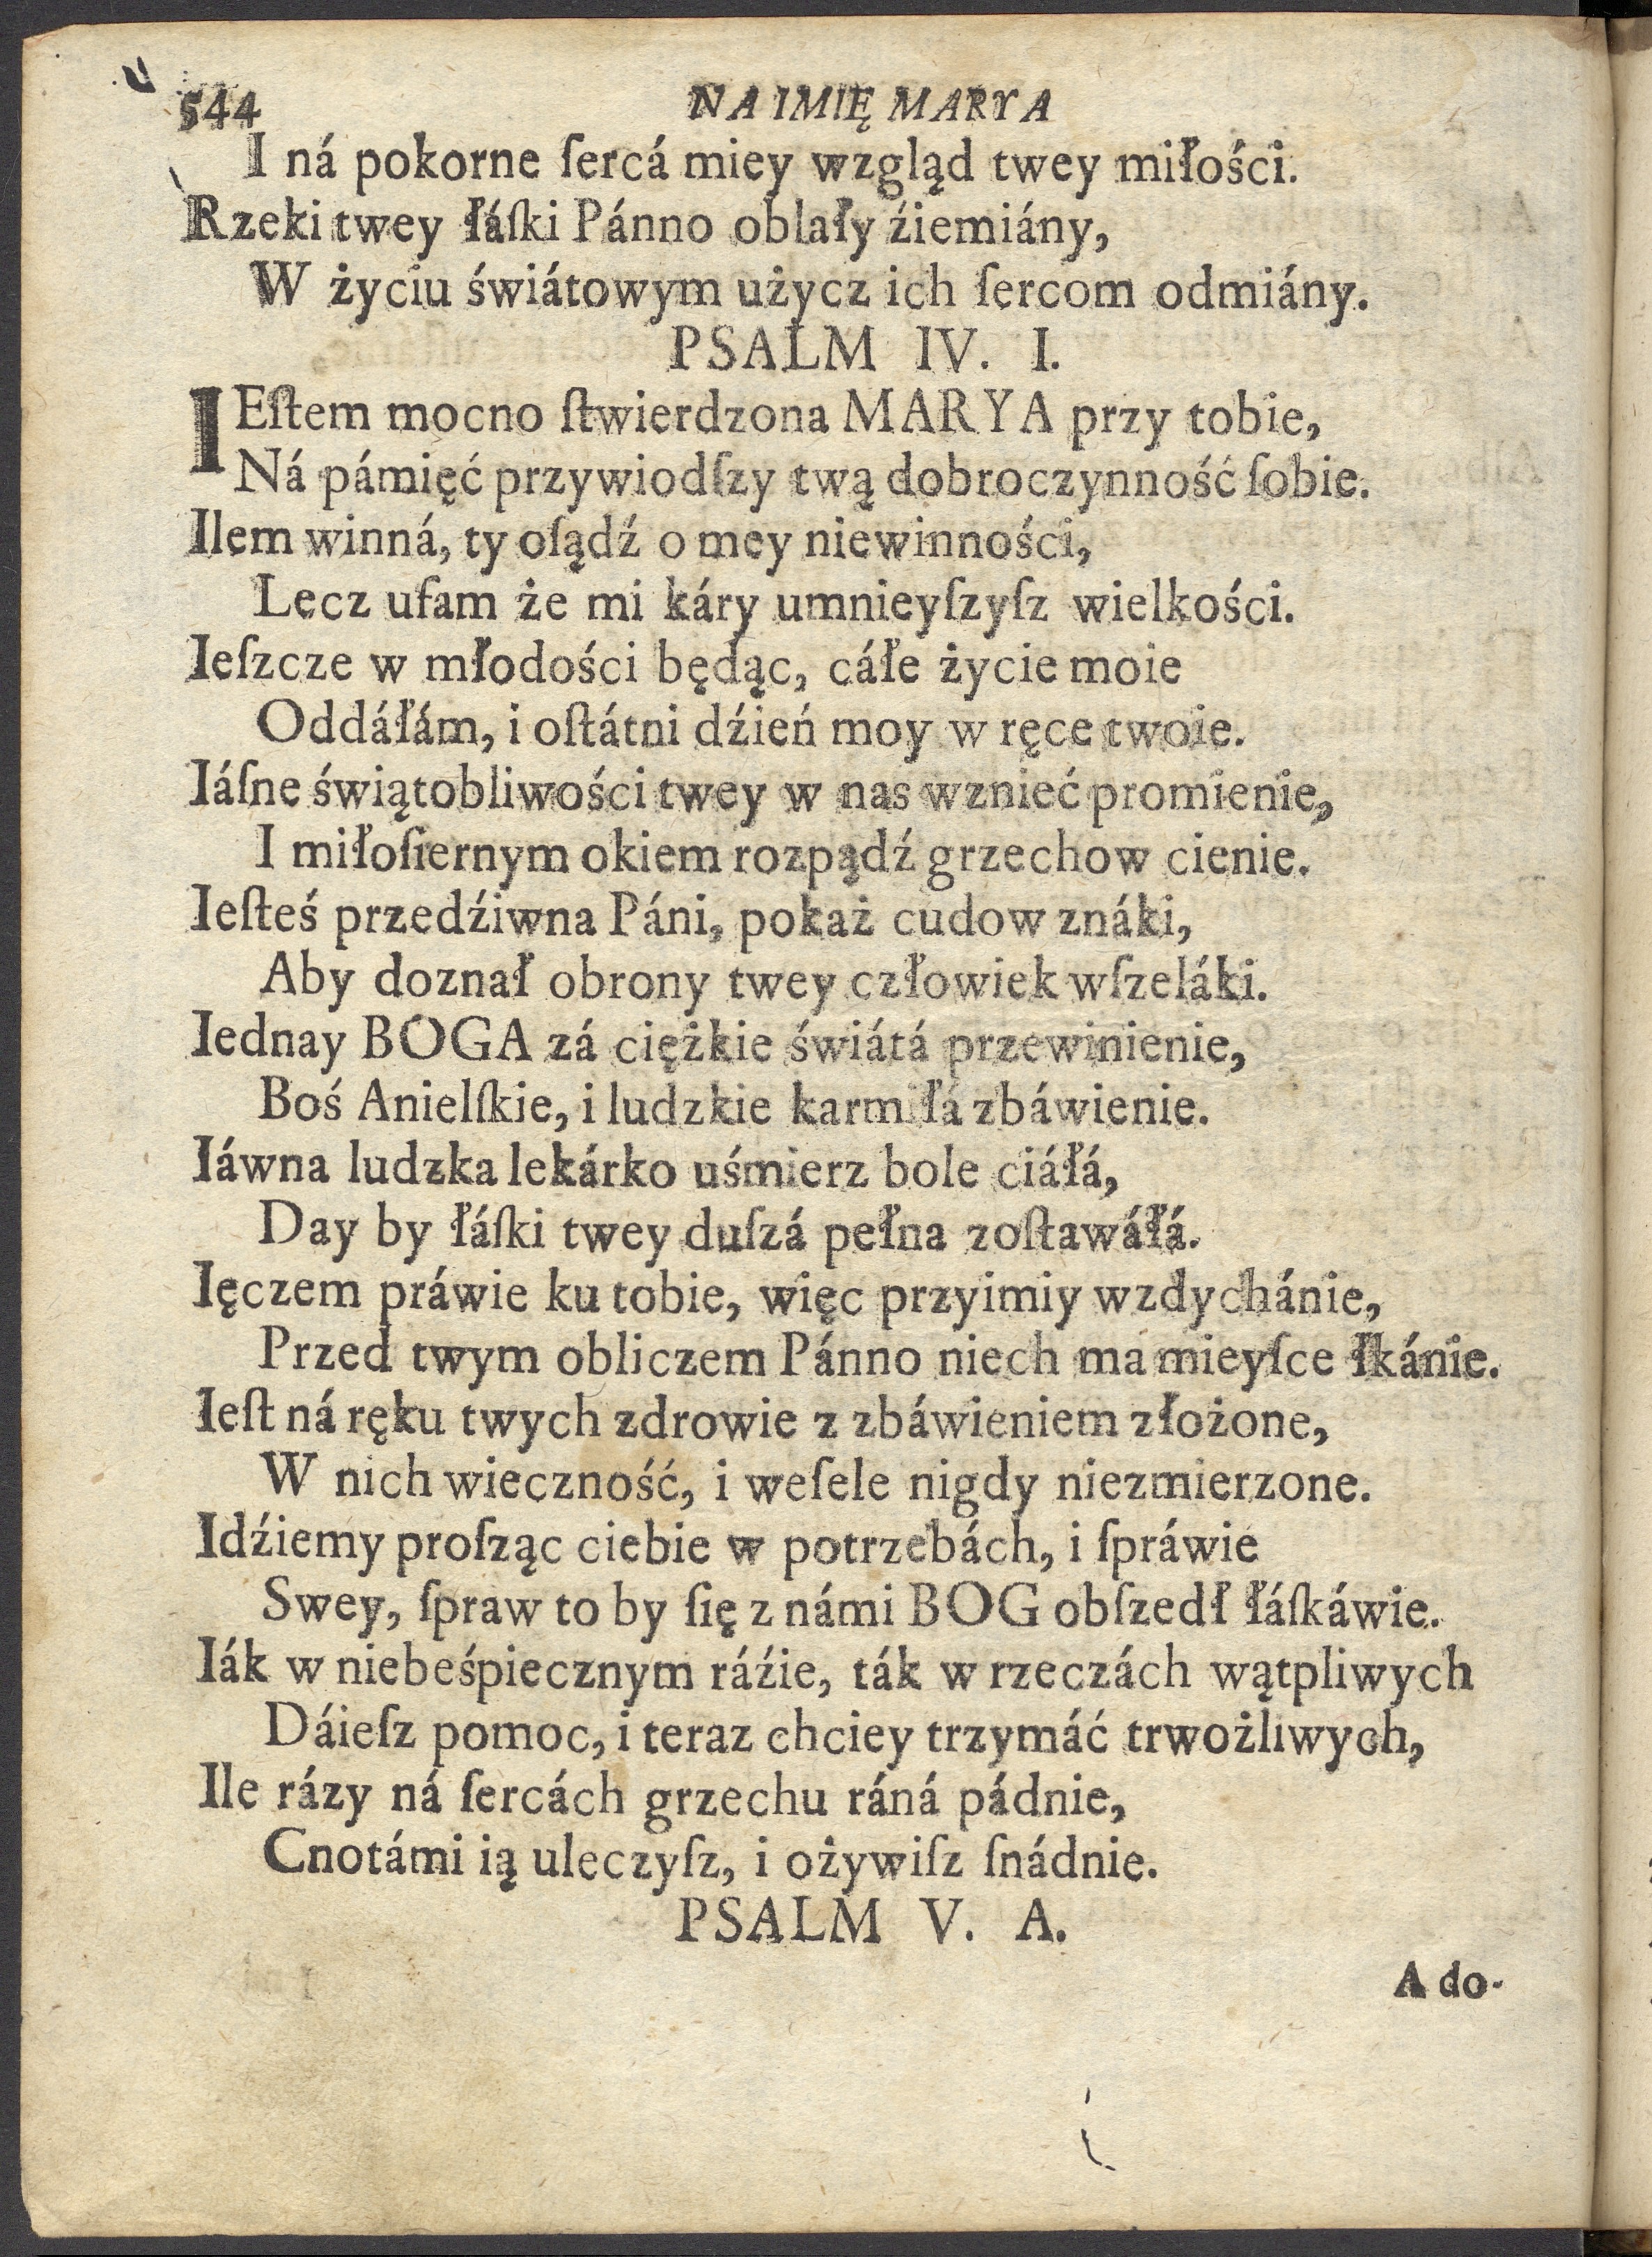 544 NA IMIĘ MARYA
I ná pokorne ſercá miey wzgląd twey miłości.
Rzeki twey łáſki Pánno oblały źiemiány,
W życiu świátowym użycz ich ſercom odmiány.
PSALM IV. I.
IEſtem mocno ſtwierdzona MARYA przy tobie,
Ná pámięć przywiodſzy twą dobroczynność ſobie.
Ilem winná, ty oſądź o mey niewinności,
Lecz ufam że mi káry umnieyſzyſz wielkości.
Ieſzcze w młodości będąc, cáłe życie moie
Oddáłám, i oſtátni dźień moy w ręce twoie.
Iáſne świątobliwości twey w nas wznieć promienie,
I miłoſiernym okiem rozpądź grzechow cienie.
Ieſteś przedźiwna Páni, pokaż cudow znáki,
Aby doznał obrony twey człowiek wſzeláki.
Iednay BOGA zá ciężkie świátá przewinienie,
Boś Anielſkie, i ludzkie karmiłá zbáwienie.
Iáwna ludzka lekárko uśmierz bole ciáłá,
Day by łáſki twey duſzá pełna zoſtawáłá.
Ięczem práwie ku tobie, więc przyimiy wzdychánie,
Przed twym obliczem Pánno niech ma mieyſce łkánie.
Ieſt ná ręku twych zdrowie z zbáwieniem złożone,
W nich wieczność, i weſele nigdy niezmierzone.
Idźiemy proſząc ciebie w potrzebách, i ſpráwie
Swey, ſpraw to by ſię z námi BOG obſzedł łáſkáwie.
Iák w niebeśpiecznym ráźie, ták w rzeczách wątpliwych
Dáieſz pomoc, i teraz chciey trzymáć trwożliwych,
Ile rázy ná ſercách grzechu ráná pádnie,
Cnotámi ią uleczyſz, i ożywiſz ſnádnie.
PSALM V. A.
A do-